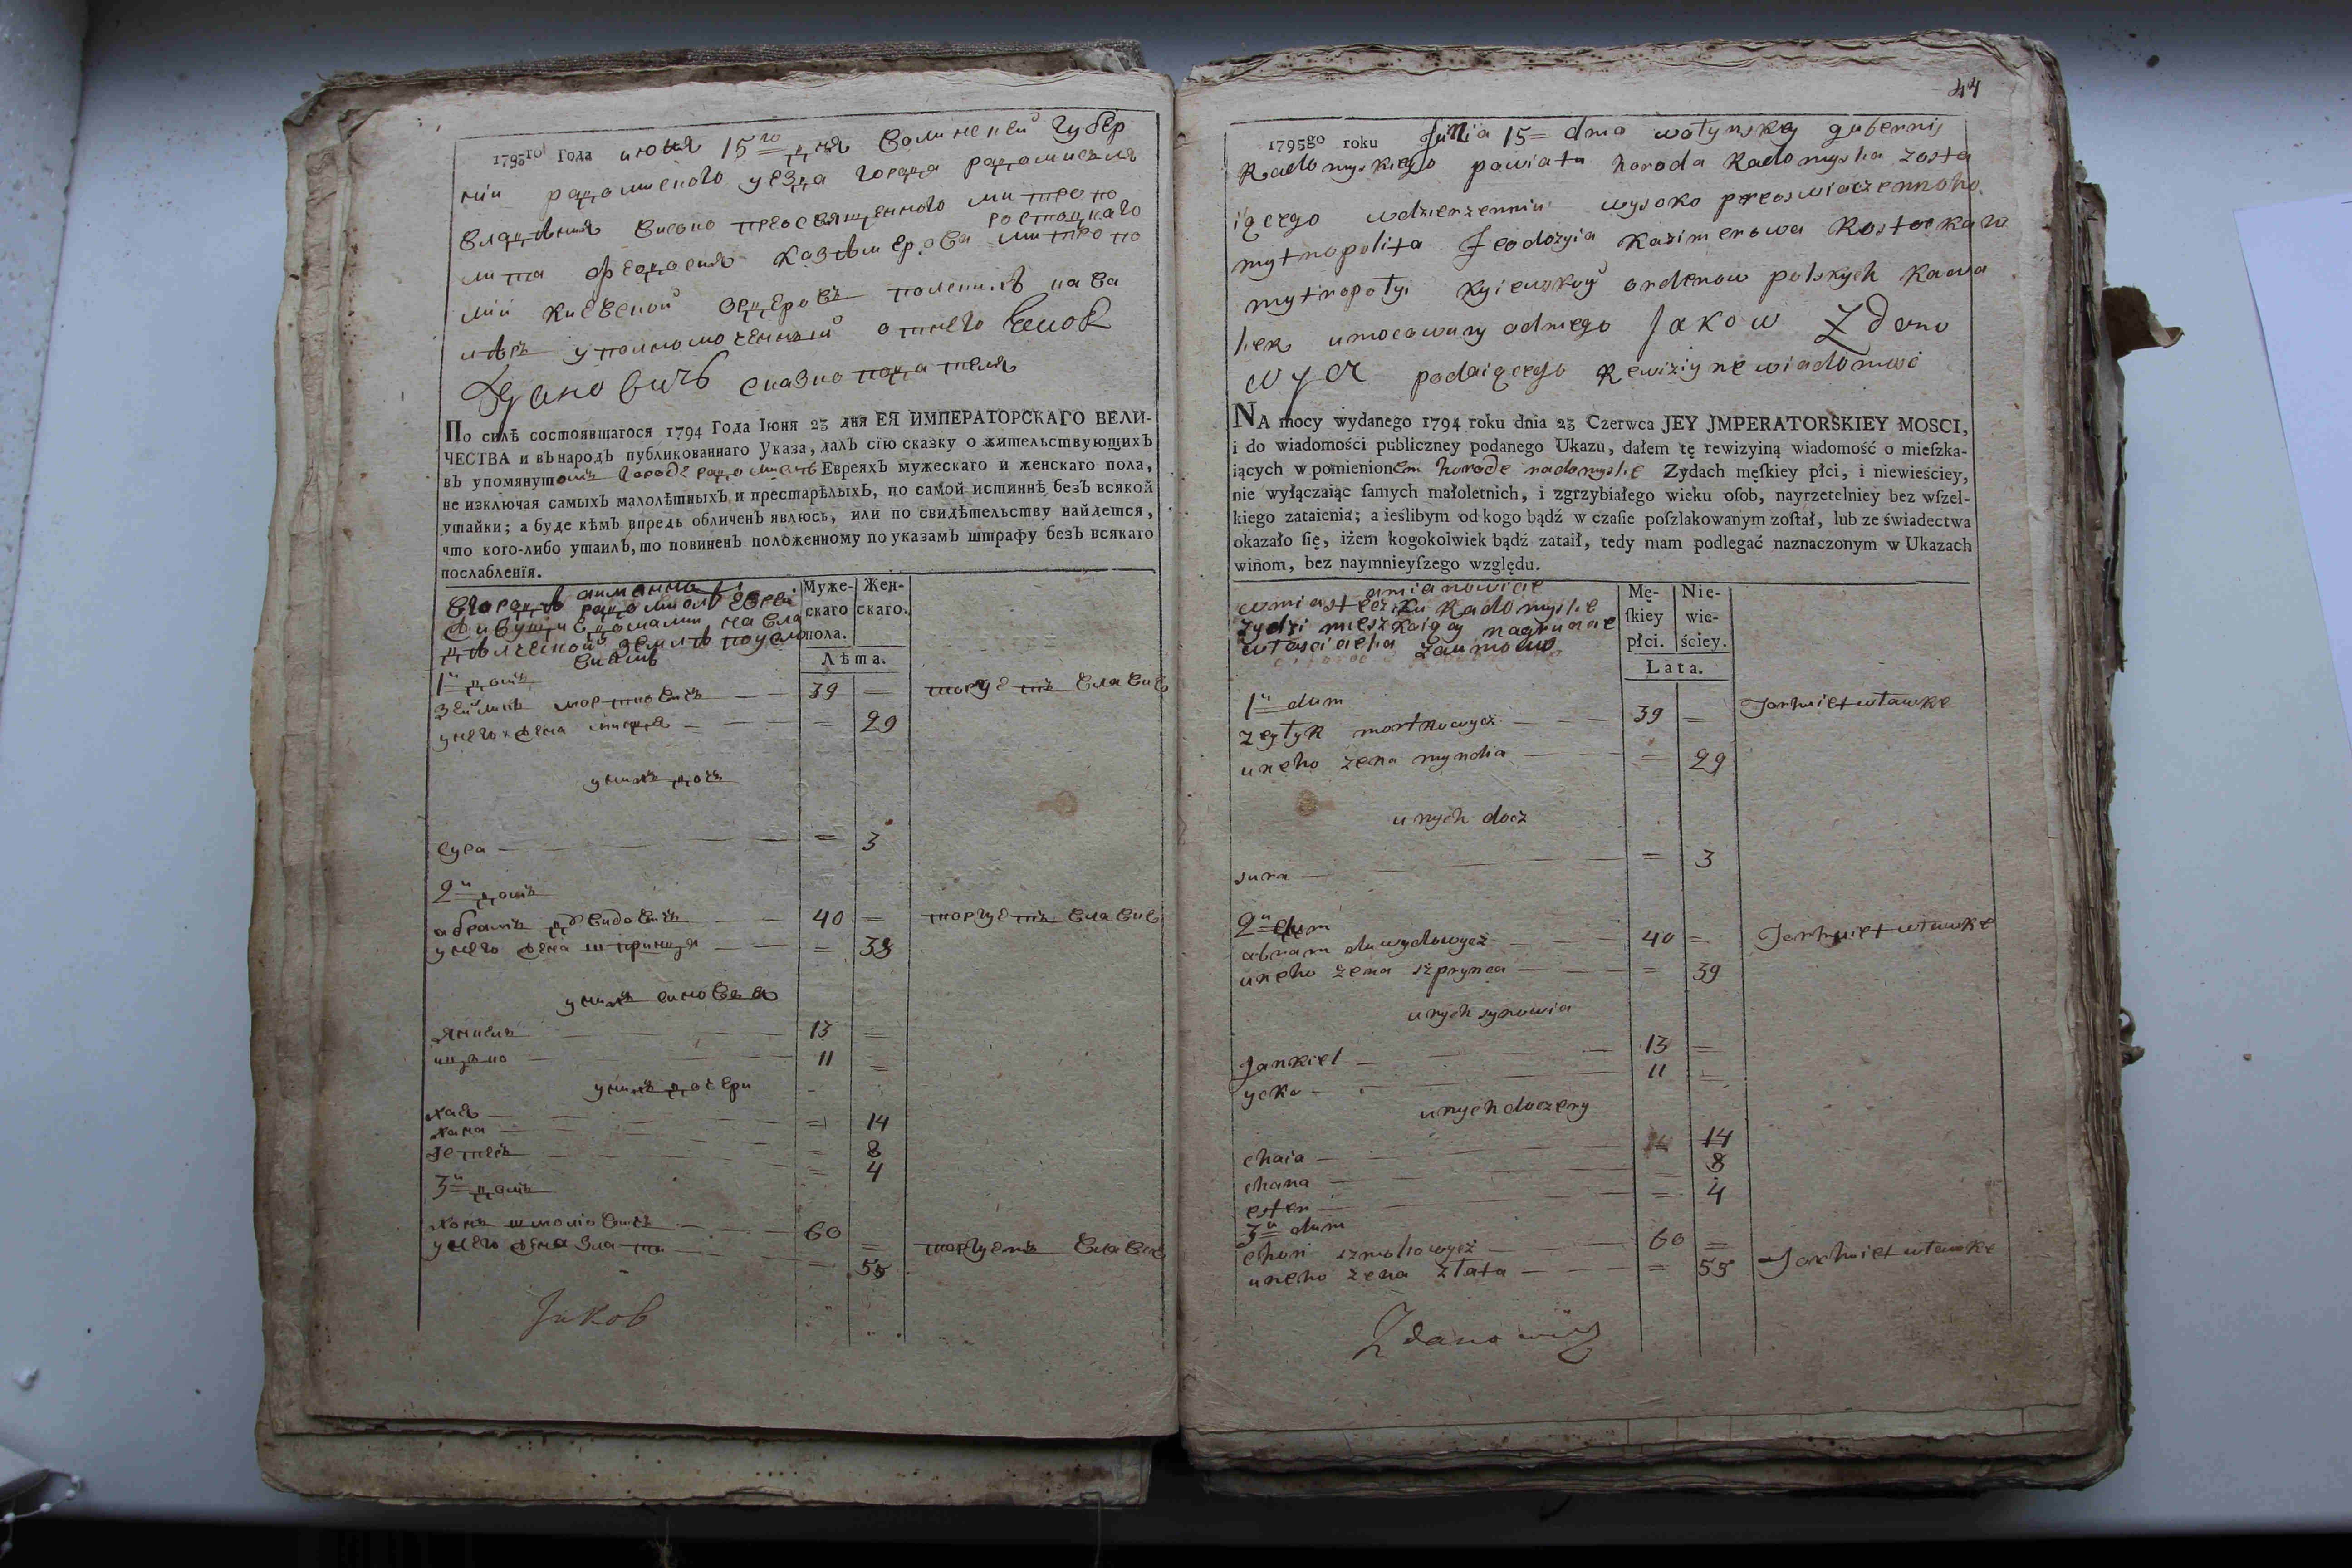 1795го Года июня 15го дня Волинской губер
нии радомиского уезда города радомисля
владѣния високо преосвященного митропо
лита феодосия казѣмерова ростоцкаго митропо
лии киевской ордеровъ полских кава
лѣръ уполномоченний отнего Яков
Ждановичъ сказкоподатель
По силѣ состоявшагося 1794 Года Іюня 23 дня ЕЯ ИМПЕРАТОРСКАГО ВЕЛИ-
ЧЕСТВА и въ народъ публикованнаго Указа, далъ сїю сказку о жительствующихъ
въ упомянутомъ городе радомислѣ Евреяхъ мужескаго и женскаго пола,
не изключая самыхъ малолѣтныхъ и престарѣлыхъ, по самой истиннѣ безъ всякой
утайки; а буде кѣмъ впредь обличенъ явлюсь, или по свидѣтельству найдется,
что кого-либо утаилъ, то повиненъ положенному по указамъ штрафу безъ всякаго
послабленїя.
аимянно
Вгородѣ радомислѣ Евреи
Муже-скаго пола. Жен-скаго.
Лѣта.
1й домъ
Зейликъ мортковичъ 39 = торгуетъ влавке
унего жена миндя = 29
унихъ дочъ
сура = 3
2й домъ
абрамъ девидовичъ 40 = торгуетъ влавке
унего жена шпринця = 38
унихъ синовья
Янкель 13 =
ицько 11 =
унихъ дочери
хая = 14
хана = 8
Естеръ = 4
3й домъ
хонъ шмолiовичъ 60 = торгуетъ влавке
унего жена злата = 55
Jakob
44
1795go roku Junia 15= dnia wołynskey gubernij
Radomyskiego powiatu horoda Radomysla zosta
iącego wdzierzenniu wysoko preoswiaczennoho
mytropolita Feodozyia Kazimerowa Rostockaho
mytropołyi Kyiewskoy orderow polskych Kawa
ler umocowany odniego Jakow Zdano
wycz podaiącego Rewizigne wiadomosć
NA mocy wydanego 1794 roku dnia 23 Czerwca JEY JMPERATORSKIEY MOSCI,
i do wiadomości publiczney podanego Ukazu, dałem tę rewizyiną wiadomość o mieſzka-
iących w pomienionem horode radomyslie Zydach męſkiey płci, i niewieściey,
nie wyłączaiąc ſamych małoletnich, i zgrzybiałego wieku oſob, nayrzetelniey bez wſzel-
kiego zataienia; a ieślibym od kogo bądź w czaſie poſzlakowanym zoſtał, lub ze świadectwa
okazało ſię, iżem kogokolwiek bądź zataił, tedy mam podlegać naznaczonym w Ukazach
winom, bez naymnieyſzego względu.
amianowicie
wmiasteczku Radomyslie
zydzi mieszkaiący nagruncie
Mę-ſkiey płci. Nie-wie-ściey.
Lata.
1й dum
zeylyk mortkowycz 39 = Torhuiet wławke
uneho zena myndia = 29
unych docz
sura = 3
2й dum
abram dawydowycz 40 = Torhuiet wławke
uneho zena szprynca = 39
unych synowia
Jankiel 13 =
ycko 11 =
unych doczery
chaia 14
chana = 8
ester = 4
3й dum
chon szmulowycz 60 = Torhuiet wławke
uneho zena złata = 55
Zdanowicz